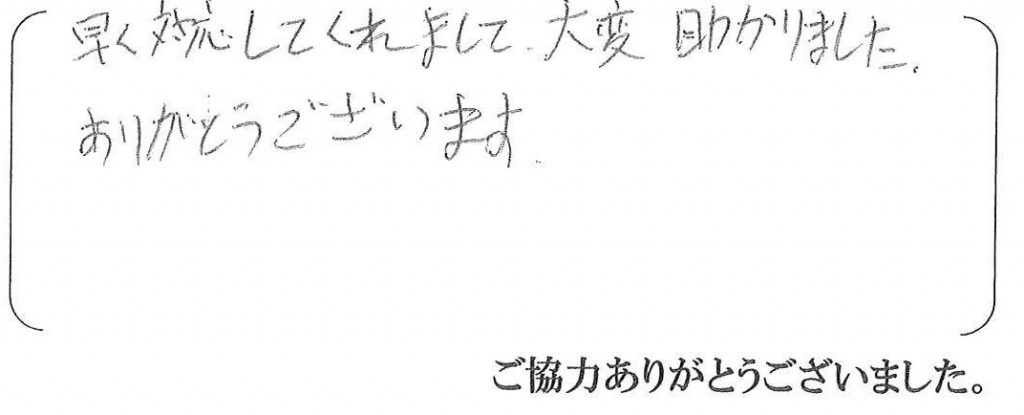 早く対応してくれまして、大変助かりました。
ありがとうございます。
ご協力ありがとうございました。